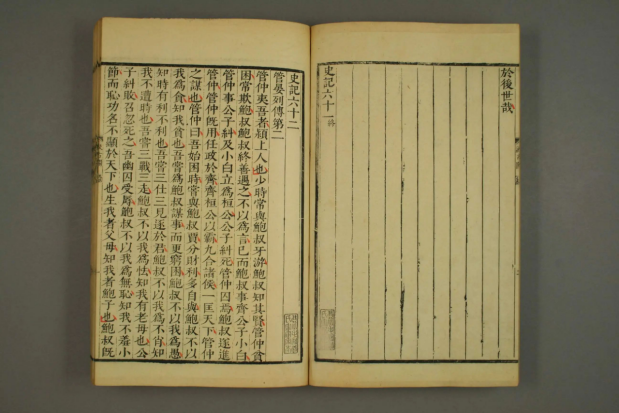 於後世哉
史記六十一終
史記六十二
管晏列傳第二
管仲夷吾者潁上人也少時常與鮑叔牙游鮑叔知其賢管仲貧
困常欺鮑叔鮑叔終善遇之不以為言已而鮑叔事齊公子小白
管仲事公子糾及小白立為桓公公子糾死管仲囚焉鮑叔遂進
管仲管仲既用任政於齊齊桓公以霸九合諸侯一匡天下管仲
之謀也管仲曰吾始困時嘗與鮑叔賈分財利多自與鮑叔不以
我為貪知我貧也吾嘗為鮑叔謀事而更窮困鮑叔不以我為愚
知時有利不利也吾嘗三仕三見逐於君鮑叔不以我為不肖知
我不遭時也吾嘗三戰三走鮑叔不以我為怯知我有老母也公
子糾敗召忽死之吾幽囚受辱鮑叔不以我為無恥知我不羞小
節而恥功名不顯於天下也生我者父母知我者鮑子也鮑叔既